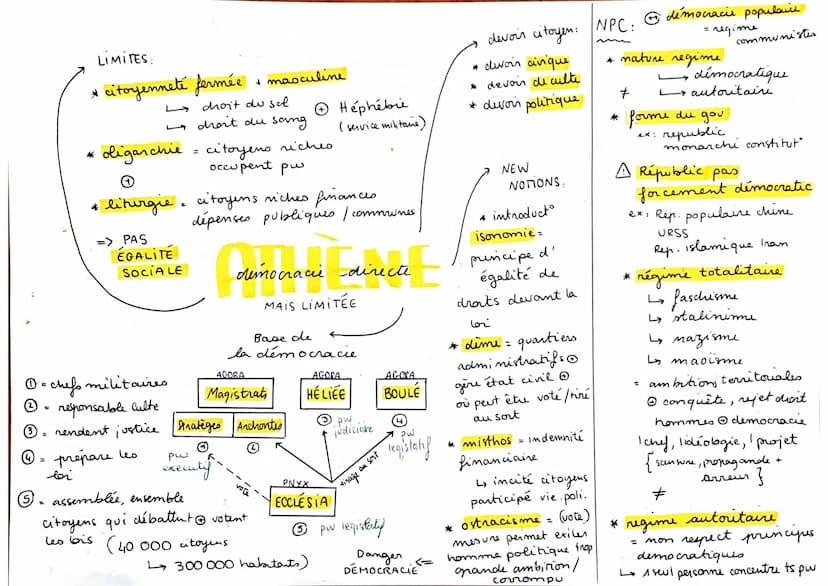 LIMITES:
* citoyenneté fermée + masculine
↳ droit du sol
↳ droit du sang
⊕ Héphébie
(service militaire)
* oligarchie = citoyens riches
occupent pw
⊕
* liturgie = citoyens riches finances
dépenses publiques / communes
=> PAS
ÉGALITÉ
SOCIALE
devoir citoyen:
* devoir civique
* devoir de culte
* devoir politique
ATHÈNE
démocracie directe
MAIS LIMITÉE
Base de
la démocracie
AGORA
Magistrats
Stratèges
Archontes
①
②
pw
executif
AGORA
HÉLIÉE
③ pw
judicière
AGORA
BOULÉ
④
pw
legislatif
vote
tirage au sort
PNYX
ECCLÉSIA
⑤ pw legislatif
① = chefs militaires
② = responsable culte
③ = rendent justice
④ = prépare les
loi
⑤ = assemblée, ensemble
citoyens qui débattent ⊕ votent
les lois (40 000 citoyens
↳ 300 000 habitats)
NEW
NOTIONS:
* introduct°
isonomie =
principe d'
égalité de
droits devant la
loi
* dème = quartiers
administratifs ⊕
gère état civil ⊕
où peut être voté/tiré
au sort
* misthos = indemnité
financiaire
↳ incité citoyens
participé vie. poli.
* ostracisme = (vote)
mesure permet exiler
homme politique trop
grande ambition /
corrompu
Danger
DÉMOCRACIE <=
NPC: ⊕ démocracie populaire
= regime
communistes
* nature regime
↳ démocratique
≠ ↳ autoritaire
* forme du gov
ex: republic
monarchi constitut°
⚠ Républic pas
forcement démocratic
ex: Rep. populaire chine
URSS
Rep. islamique Iran
* régime totalitaire
↳ faschisme
↳ stalinisme
↳ nazisme
↳ maoïsme
= ambition territoriales
⊕ conquête, rejet droit
hommes ⊕ démocracie
1 chef, 1 idéologie, 1 projet
{ censure, propagande +
terreur }
≠
* regime autoritaire
= non respect principes
democratiques
↳ 1 seul personne concentre ts pw